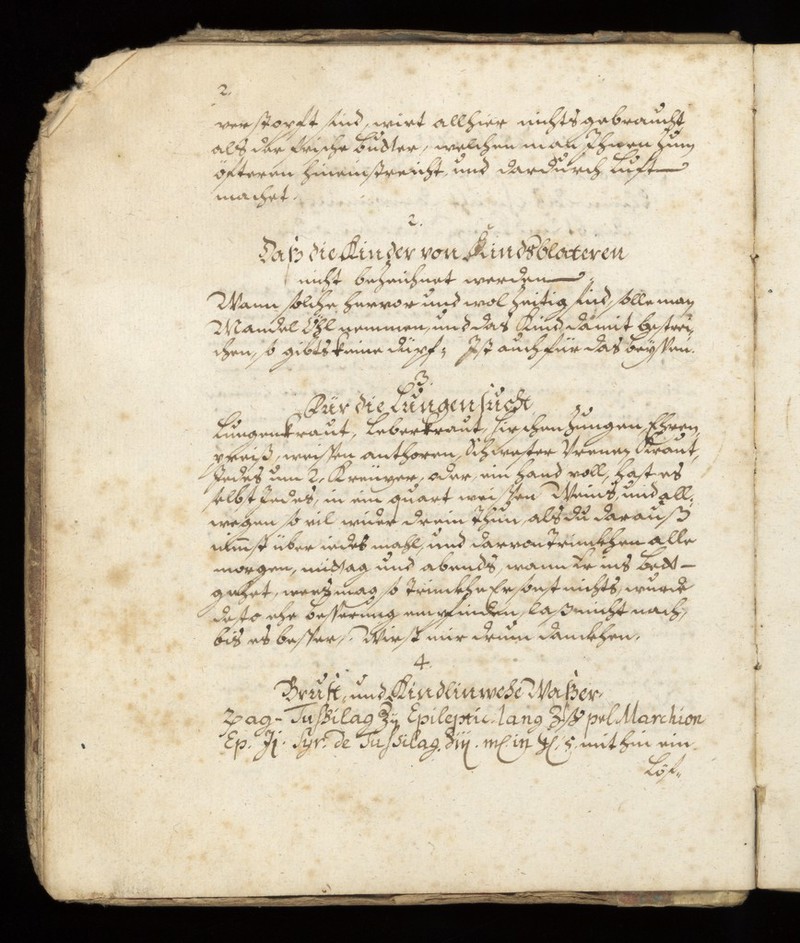 2.
verstopft sind, wirt allhier nichts gebraucht
als der frische Butter, welchen man Ihnen zum
öfteren hineinstreicht, und dardurch lufft
machet.
2.
Daß die Kinder von Kindsblateren
nicht bezeichnet werden.
Wann solche hervor und wol zeitig sind, solle man
Mandel Öhl nemmen, und das Kind damit bestrei-
chen, so gibts keine düpf: Ist auch für das beyssen.
3.
Für die Lungensucht
Lungenkraut, Leberkraut, Hirschenzungen, Ehren
preiß, weissen anthoren, Kraut,
Jedes um 2. Kreüzer, oder, ein hand voll, hast es
selbst Jedes, in ein quart weissen Weins, und all-
wegen so vil wider drein thun, als du darauß
nimst über iedes mahl, und darvon trinckhen alle
morgen, mittag und abends, wann Er ins Bett
gehet, wers mag, so trinckhe Er sonst nichts, wurde
desto ehe besserung empfinden, laß nicht nach,
bis es besser. Wirst mir drum danckhen.
4.
Brust, und Kindlinwehe Waßer.
aq. Tußilag ℥ij Epileptic. lang ℥ſs pel. Marchion
Ep. Syr. de Tußilag. ℥iij. mit hin ein
Löf-